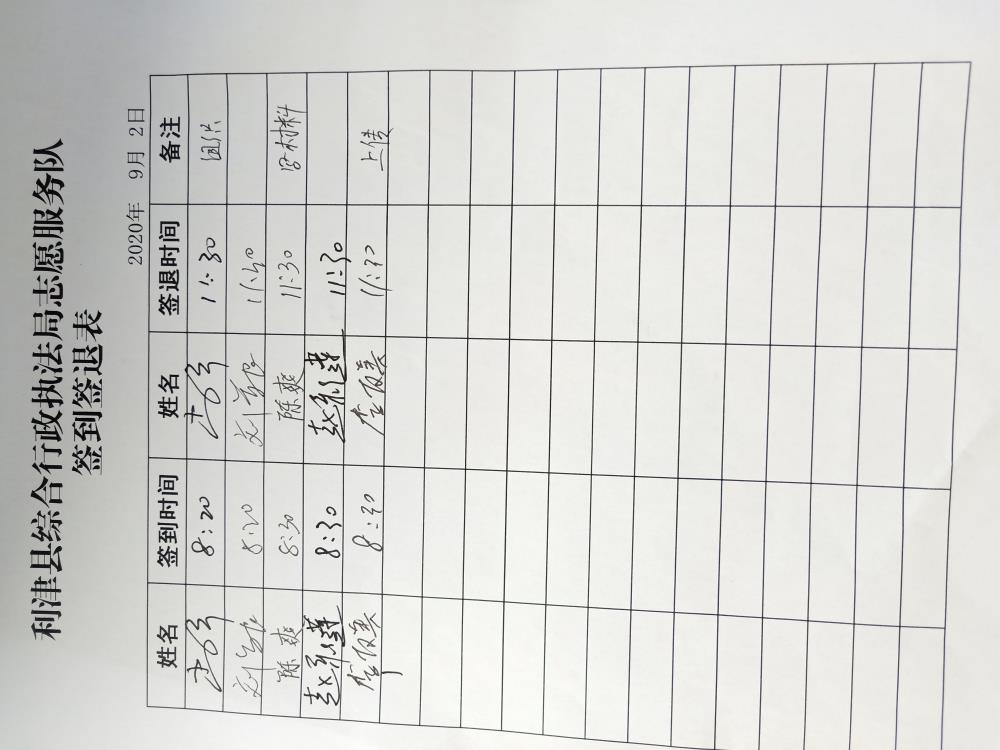 利津县综合行政执法局志愿服务队
签到签退表
2020年 9月 2日
姓名 签到时间 姓名 签退时间 备注
8:20 11:30 组织
8:20 11:40
陈爽 8:30 陈爽 11:30 写材料
8:30 11:30
8:30 11:30 上传